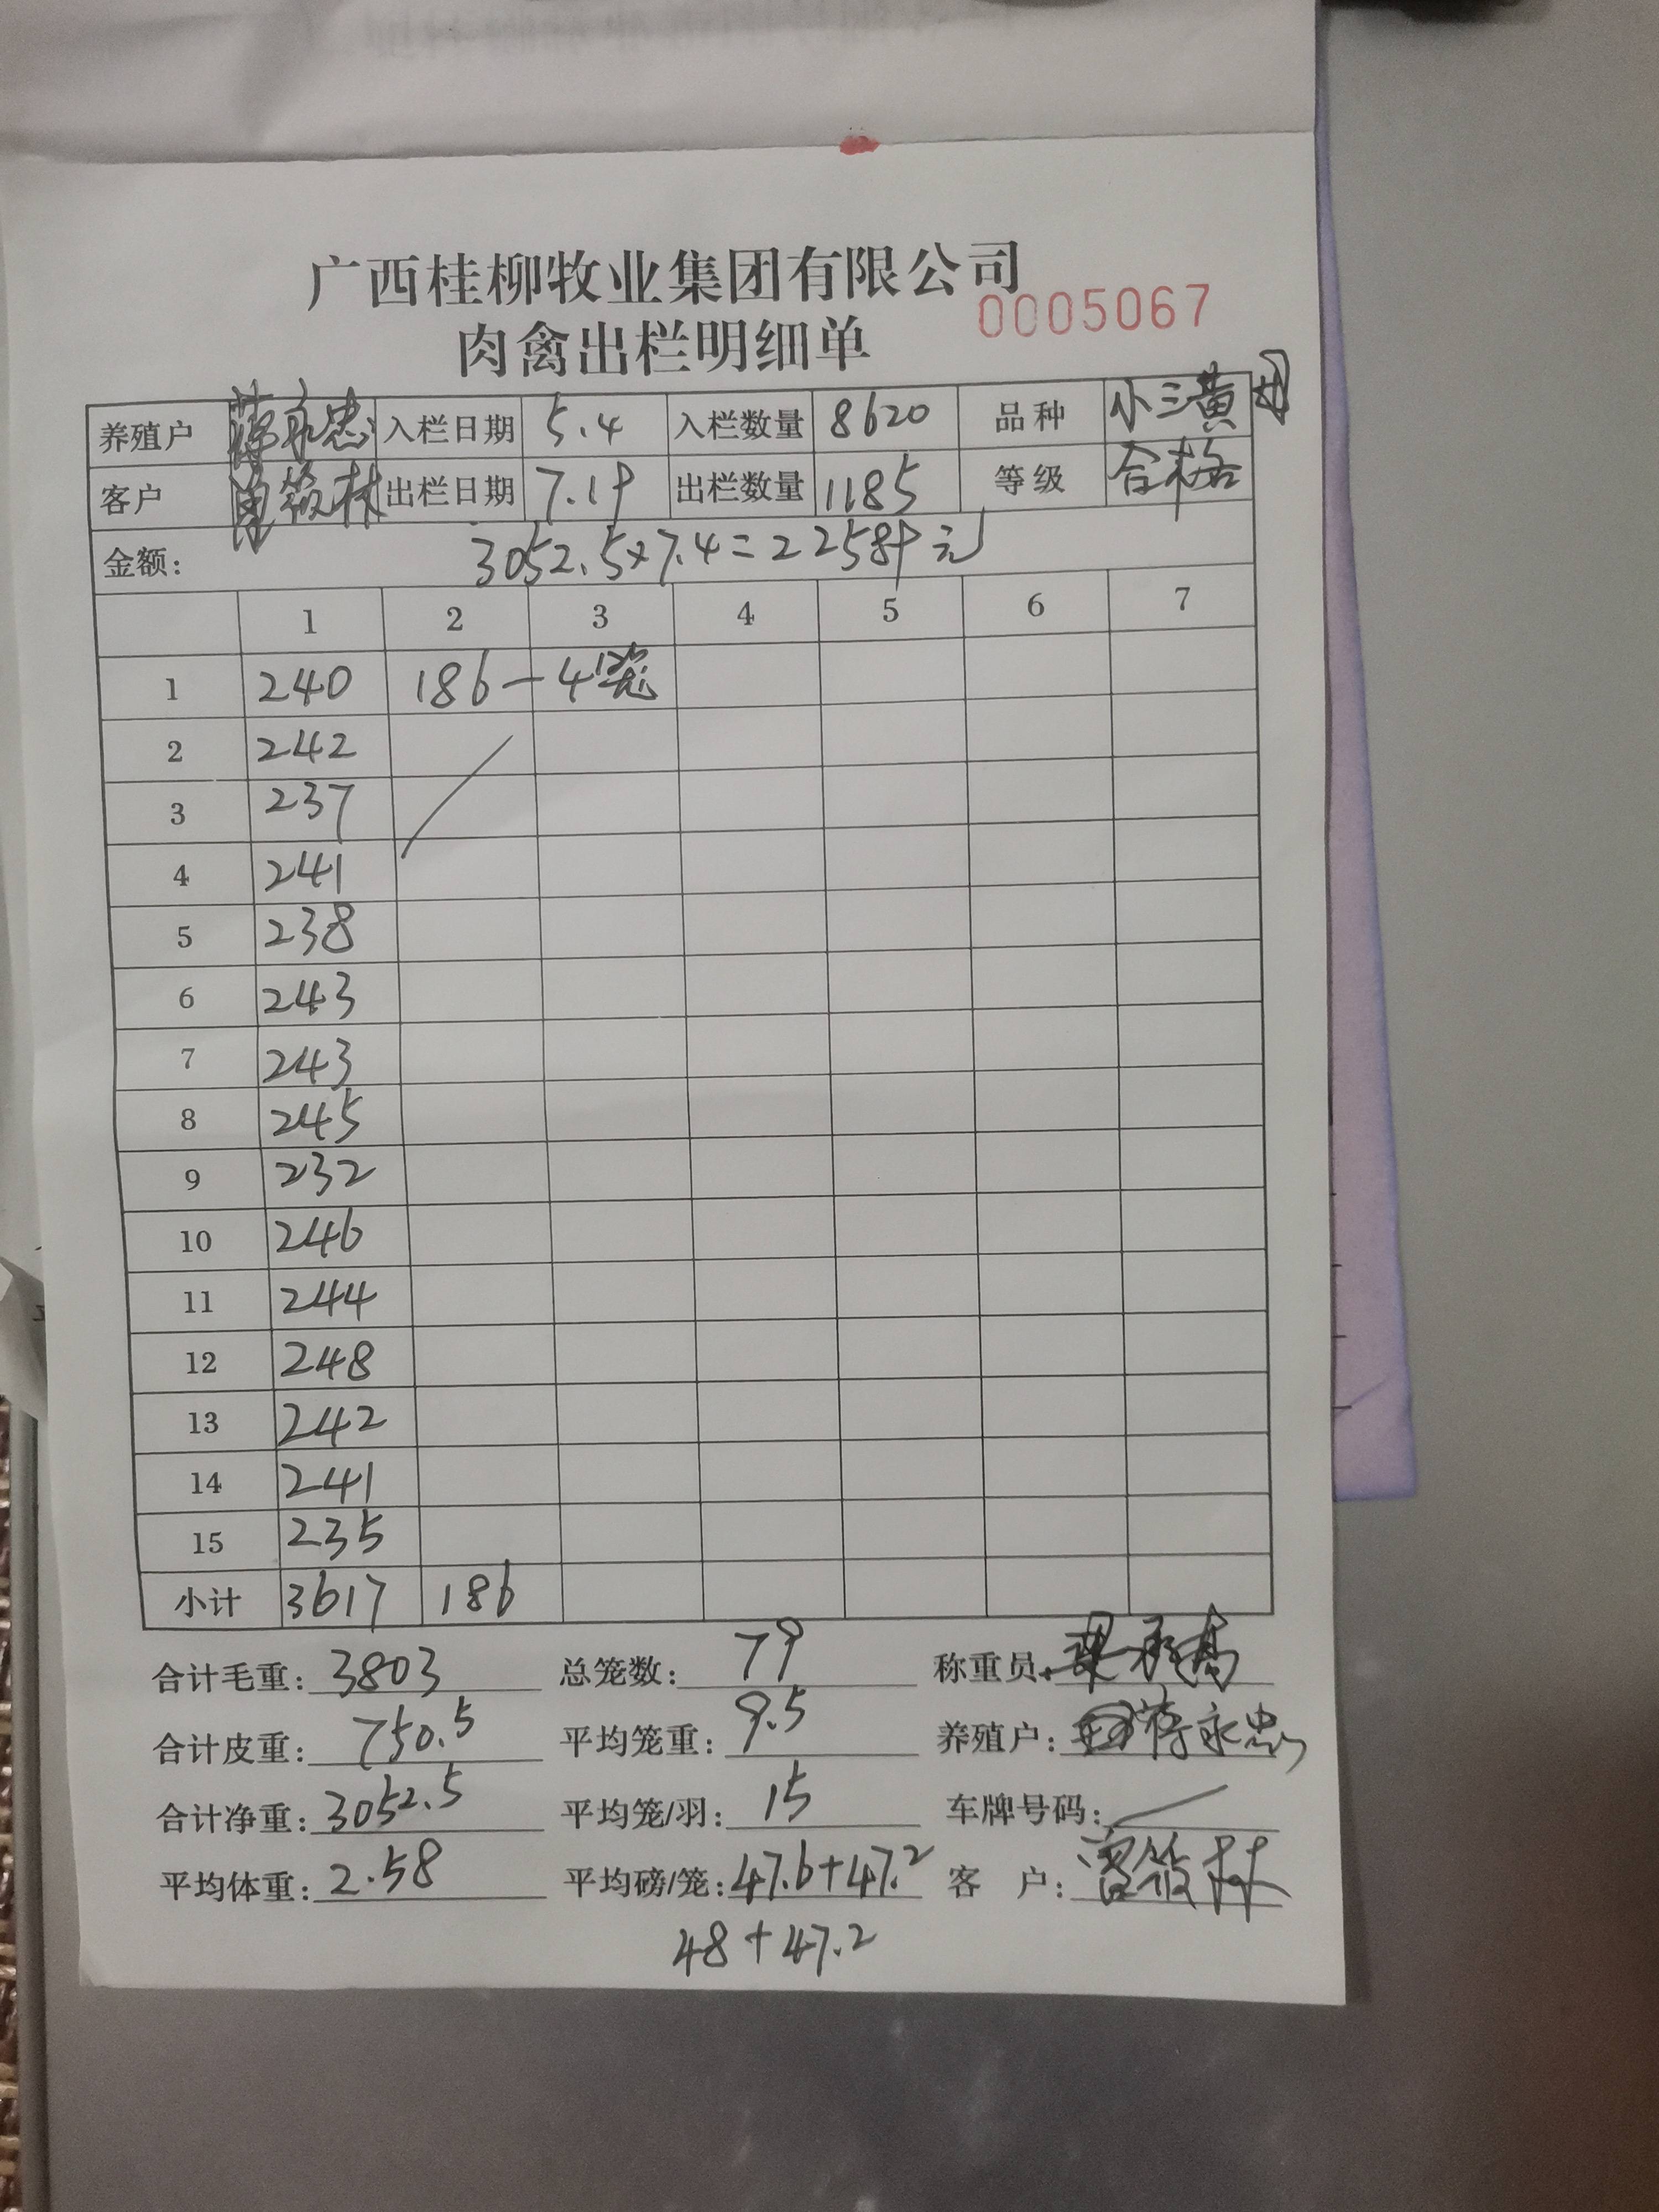 广西桂柳牧业集团有限公司
0005067
肉禽出栏明细单
养殖户 蒋永忠 入栏日期 5.4 入栏数量 8620 品种 小三黄母
客户 筱林 出栏日期 7.19 出栏数量 1185 等级 合格
金额: 3052.5×7.4=22589元
1 2 3 4 5 6 7
1 240 186—4笼
2 242
3 237
4 241
5 238
6 243
7 243
8 245
9 232
10 246
11 244
12 248
13 242
14 241
15 235
小计 3617 186
合计毛重: 3803 总笼数: 79 称重员:
合计皮重: 750.5 平均笼重: 9.5 养殖户: 蒋永忠
合计净重: 3052.5 平均笼/羽: 15 车牌号码:
平均体重: 2.58 平均磅/笼: 47.6+47.2 客 户: 筱林
48+47.2